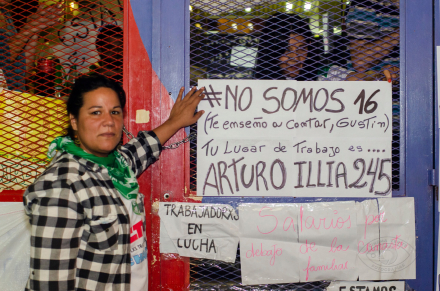 #NO SOMOS 16
(Te enseño a contar, Gustin)
Tu Lugar de Trabajo es....
ARTURO ILLIA 245
TRABAJADORXS
EN
LUCHA
Salarios por
debajo de la canasta
familiar
ESTAMOS